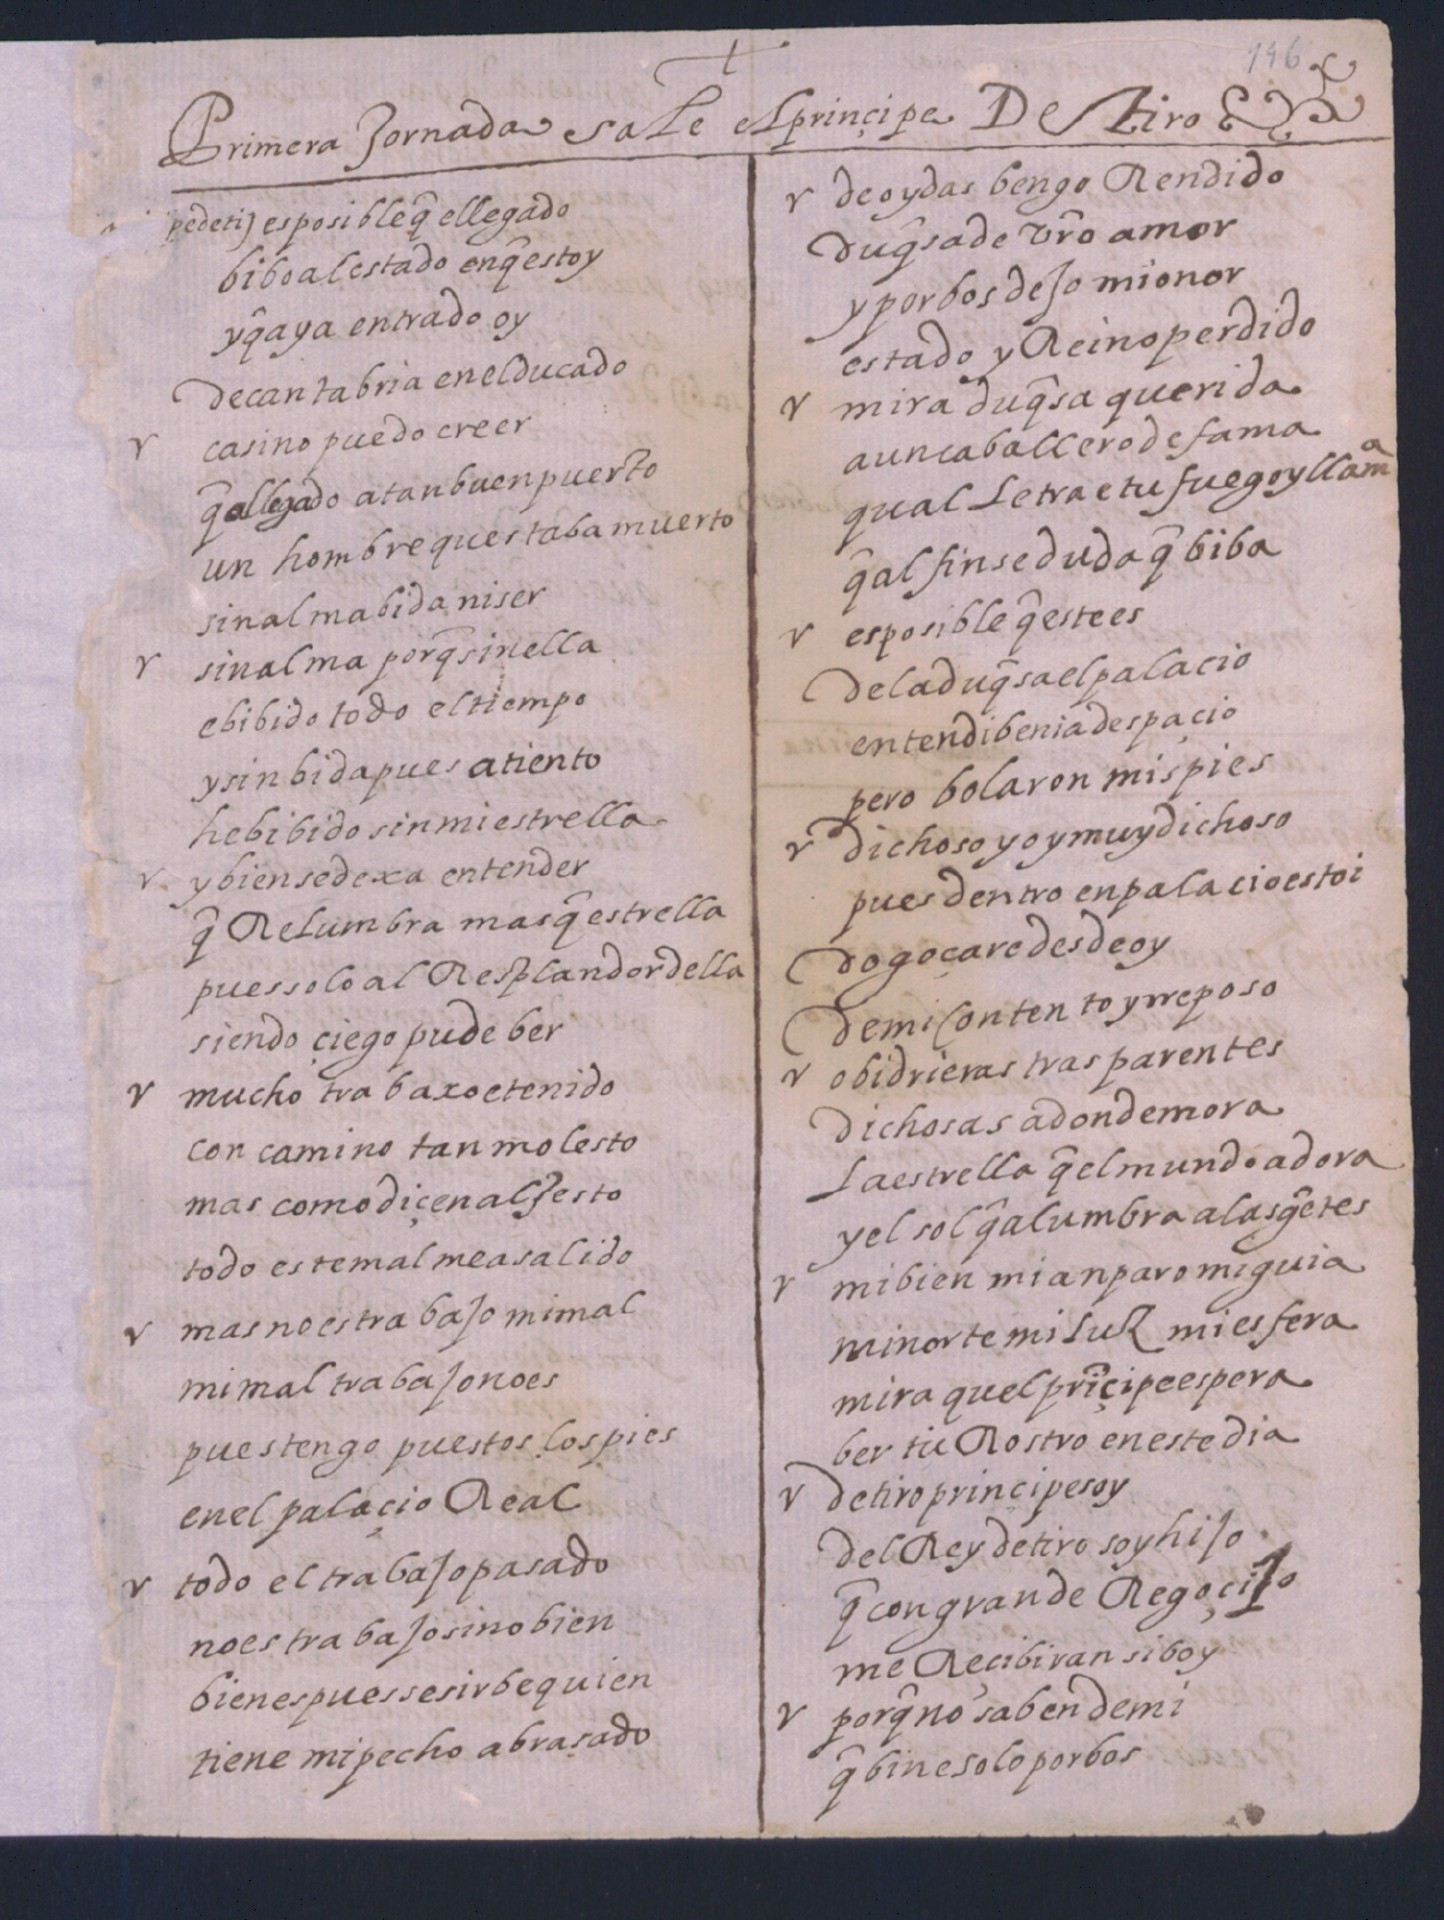 196
Primera Jornada sale el prinçipe De Tiro
pe de ti] es posible q̃ e llegado
bibo al estado en q̃ estoy
y q̃ aya entrado oy
de cantabria en el ducado
casi no puedo creer
q̃ allegado a tan buen puerto
un hombre que estaba muerto
sin alma bida ni ser
sin alma porq̃ sin ella
e bibido todo el tiempo
y sin bida pues atiento
he bibido sin mi estrella
y bien se dexa entender
q̃ Relumbra mas q̃ estrella
pues solo al Resplandor della
siendo çiego pude ber
mucho trabaxo e tenido
con camino tan molesto
mas como diçen al gesto
todo este mal me a salido
mas no es trabajo mi mal
mi mal trabajo no es
pues tengo puestos los pies
en el palaçio Real
todo el trabajo pasado
no es trabajo sino bien
bien es pues se sirbe quien
tiene mi pecho abrasado
de oydas bengo Rendido
duq̃sa de vr̃o amor
y por bos dejo mi onor
estado y Reino perdido
mira duq̃sa querida
a un caballero de fama
qual le trae tu fuego y llama
q̃ al fin se duda q̃ biba
es posible q̃ este es
de la duq̃sa el palacio
entendi benia despaçio
pero bolaron mis pies
dichoso yo y muy dichoso
pues dentro en palacio estoi
do goçare desde oy
de mi contento y rreposo
o bidrieras trasparentes
dichosas adonde mora
la estrella q̃ el mundo adora
y el sol q̃ alumbra a las gẽtes
mi bien mi anparo mi guia
mi norte mi luz mi esfera
mira quel prĩçipe espera
ber tu Rostro en este dia
de tiro principe soy
del Rey de tiro soy hijo
q̃ con grande Regoçijo
me Reçibiran si boy
porq̃ no saben de mi
q̃ bine solo por bos